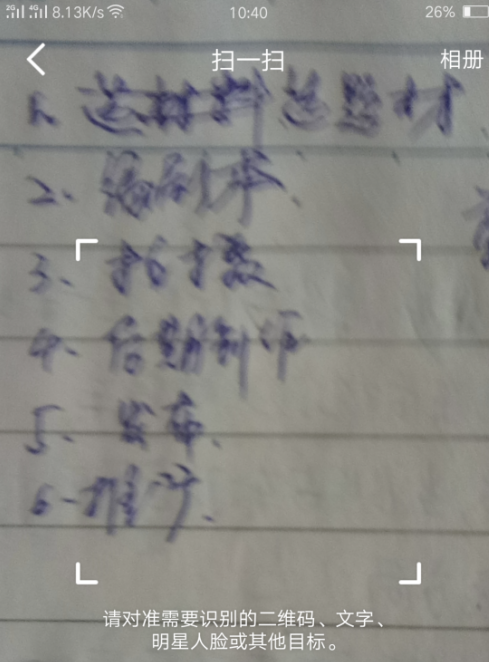 2G 4G 8.13K/s 10:40 26%
扫一扫 相册
1. 选材料 选题材
2. 编剧本.
3. 拍摄
4. 后期制作
5. 发布.
6-推广.
请对准需要识别的二维码、文字、
明星人脸或其他目标。